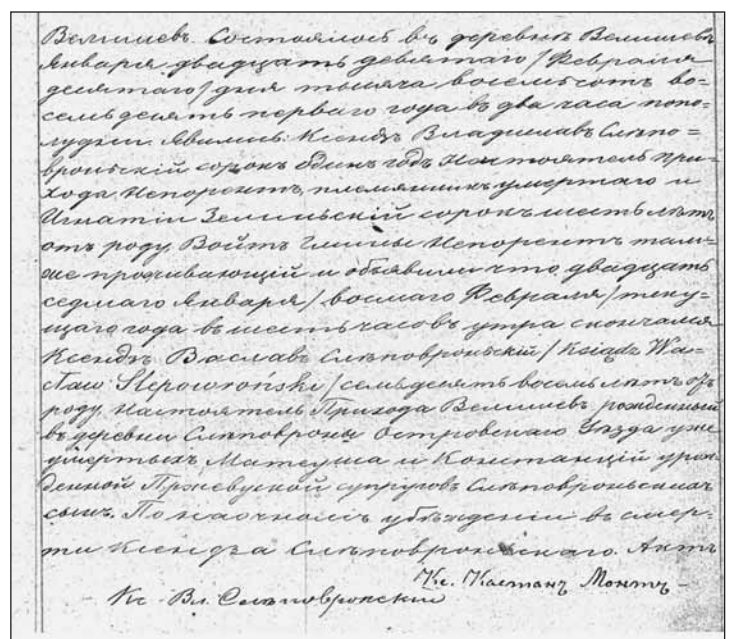 Велишевъ. Состоялось въ деревнѣ Велишевъ
Января двадцать девятаго / Февраля
десятаго / дня тысяча восемьсотъ во=
семьдесятъ перваго года въ два часа попо=
лудни. Явились: Ксендзъ Владиславъ Слѣпо=
вроньскій сорокъ одинъ годъ Настоятель При=
хода Непорентъ, племянникъ умершаго и
Игнатій Зелиньскій сорокъ шесть лѣтъ
отъ роду Войтъ Гмины Непорентъ тамъ=
же проживающій и объявили что двадцать
седмаго Января / восмаго Февраля / теку=
щаго года въ шесть часовъ утра скончался
Ксендзъ Вацлавъ Слѣповроньскій / Ksiądz Wa=
cław Slepowroński / семьдесятъ восемь лѣтъ отъ
роду Настоятель Прихода Велишевъ рожденный
въ деревни Слѣповроны Островскаго Уѣзда уже
умершыхъ Матеуша и Констанціи урож=
денной Пржевуской супруговъ Слѣповроньскихъ
сынъ. По наочномъ убѣжденіи въ смер=
ти Ксендза Слѣповроньскаго. Актъ
Кс. Каетанъ Монтъ
Кс. Вл. Слѣповронскій